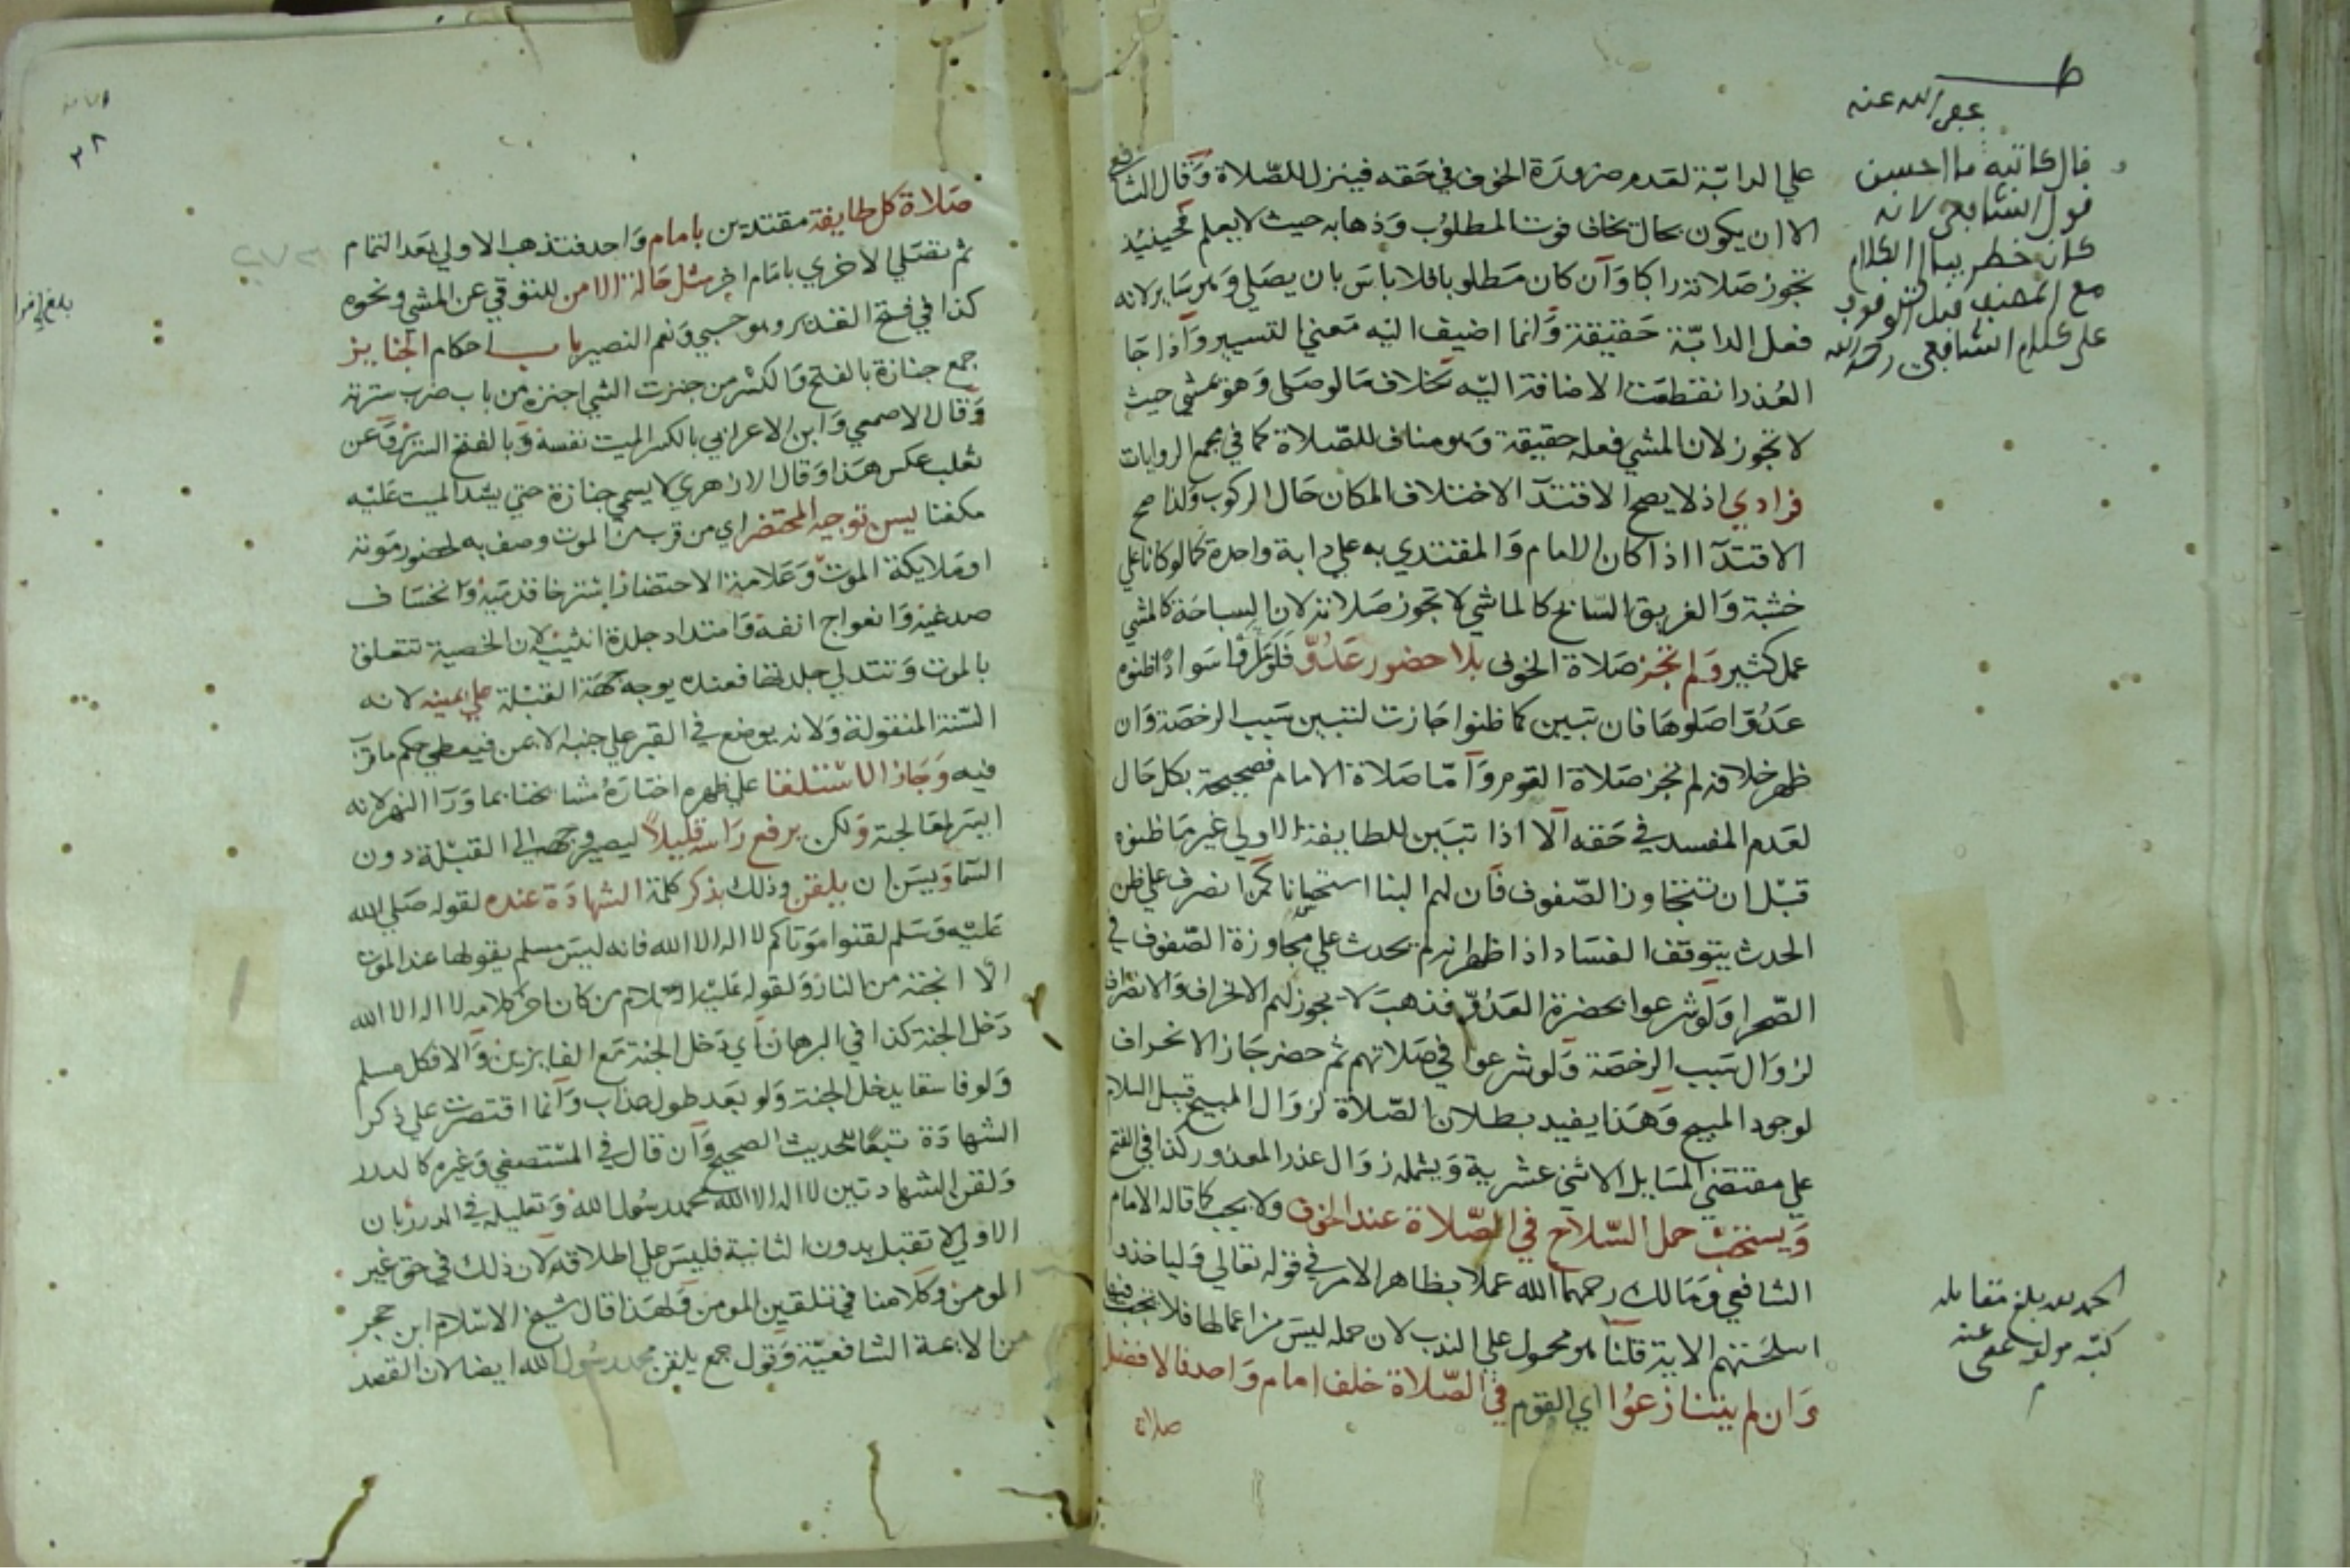 على الدابة لعدم ضرورة الخوف في حقه فينزل للصلاة وقال الشافعي
الا ان يكون بحال يخاف فوت المطلوب وذهابه حيث لا يعلم فحينيذ
تجوز صلاته راكبا وان كان مطلوبا فلا باس بان يصلي وهو ساير لانه
فعل الدابة حقيقة وانما اضيف اليه معني التسيير واذا جا
العذر انقطعت الاضافة اليه بخلاف ما لو صلى وهو يمشي حيث
لا تجوز لان المشي فعله حقيقة وهو مناف للصلاة كما في مجمع الروايات
فرادي اذ لا يصح الاقتدآ لاختلاف المكان حال الركوب ولذا صح
الاقتدآ اذا كان الامام والمقتدي به علي دابة واحدة كما لو كانا علي
خشبة والغريق السابح كالماشي لا تجوز صلاته لان السباحة كالمشي
عمل كثير ولم تجز صلاة الخوف بلا حضور عدو فلو راوا سوادا ظنوه
عدوا صلوها فان تبين كما ظنوا جازت لتبين سبب الرخصة وان
ظهر خلافه لم تجز صلاة القوم وآما صلاة الامام فصحيحة بكل حال
لعدم المفسد في حقه الا اذا تبين للطايفة الاولي غير ما ظنوه
قبل ان تتجاوز الصفوف فان لهم البنا استحسانا كمن انصرف علي ظن
الحدث يتوقف الفساد اذا ظهر انه لم يحدث علي مجاوزة الصفوف في
الصحرا ولو شرعوا بحضرة العدو فذهب لا يجوز لهم الانحراف والانصراف
لزوال سبب الرخصة ولو شرعوا في صلاتهم ثم حضر جاز الانحراف
لوجود المبيح وهذا يفيد بطلان الصلاة لزوال المبيح قبل السلام
علي مقتضي المسايل الاثني عشرية ويشمله زوال عذر المعذور كذا في الفتح
ويستحب حمل السلاح في الصلاة عند الخوف ولا يجب كما قاله الامام
الشافعي ومالك رحمهما الله عملا بظاهر الامر في قوله تعالي ولياخذوا
اسلحتهم الاية قلنا هو محمول علي الندب لان حمله ليس من اعمالها فلا يجب فيها
وان لم يتنازعوا اي القوم في الصلاة خلف امام واحد فالافضل
صلاة
قال كاتبه عفي الله عنه ما احسن
قول الشافعي لانه
كان خطر ببالي الكلام
مع المصنف قبل الوقوف
علي كلام الشافعي رحمه الله
الحمد لله بلغ مقابله
كتبه مولفه عفي عنه
صلاة كل طايفة مقتدين بامام واحد فتذهب الاولي بعد التمام
ثم تصلي الاخري بامام اخر مثل حالة الامن للتوقي عن المشي ونحوه
كذا في فتح القدير وهو حسبي ونعم النصير باب احكام الجنايز
جمع جنازة بالفتح والكسر من جنزت الشي اجنزه من باب ضرب سترته
وقال الاصمعي وابن الاعرابي بالكسر الميت نفسه وبالفتح السرير وعن
ثعلب عكس هذا وقال الازهري لا يسمي جنازة حتي يشد الميت عليه
مكفنا يسن توجيه المحتضر اي من قرب من الموت وصف به لحضور موته
او ملايكة الموت وعلامة الاحتضار استرخا قدميه وانخساف
صدغيه واعوجاج انفه وامتداد جلدة انثييه لان الخصية تتعلق
بالموت وتتدلي جلدتها فعنده يوجه جهة القبلة علي يمينه لانه
السنة المنقولة ولانه يوضع في القبر علي جنبه الايمن فيعطي حكم ما قرب
فيه وجاز الاستلقا علي ظهره اختاره مشايخنا بما ورآ النهر لانه
ايسر لمعالجته ولكن يرفع راسه قليلا ليصير وجهه الي القبلة دون
السما ويسن ان يلقن وذلك بذكر كلمة الشهادة عنده لقوله صلي الله
عليه وسلم لقنوا موتاكم لا اله الا الله فانه ليس مسلم يقولها عند الموت
الا انجته من النار ولقوله عليه السلام من كان اخر كلامه لا اله الا الله
دخل الجنة كذا في البرهان اي دخل الجنة مع الفايزين والا فكل مسلم
ولو فاسقا يدخل الجنة ولو بعد طول عذاب وانما اقتصرت علي ذكر
الشهادة تبعا للحديث الصحيح وان قال في المستصفي وغيره كالدرر
ولقن الشهادتين لا اله الا الله محمد رسول الله وتعليله في الدرر بان
الاولي لا تقبل بدون الثانية فليس علي اطلاقه لان ذلك في حق غير
المومن وكلامنا في تلقين المومن ولهذا قال شيخ الاسلام ابن حجر
من الايمة الشافعية وقول جمع يلقن محمد رسول الله ايضا لان القصد